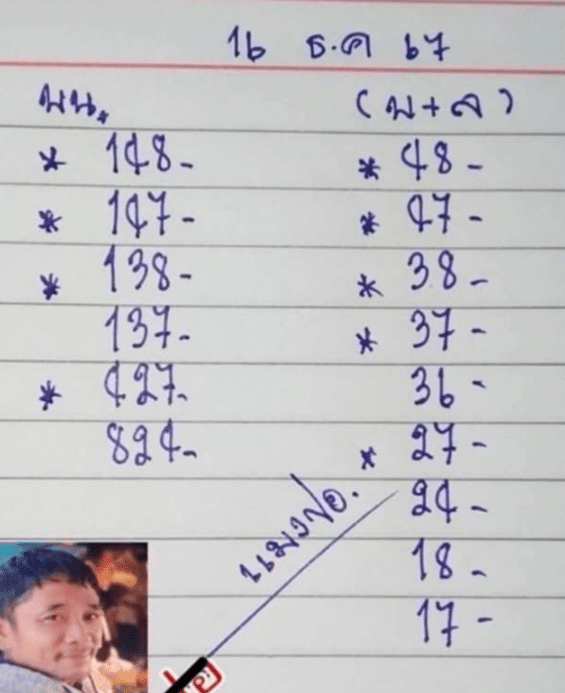 16 ธ.ค 67
บน. (บ+ล)
* 148- * 48-
* 147- * 47-
* 138- * 38-
137- * 37-
* 427- 36-
824- * 27-
แมงปอ. 24-
18-
17-